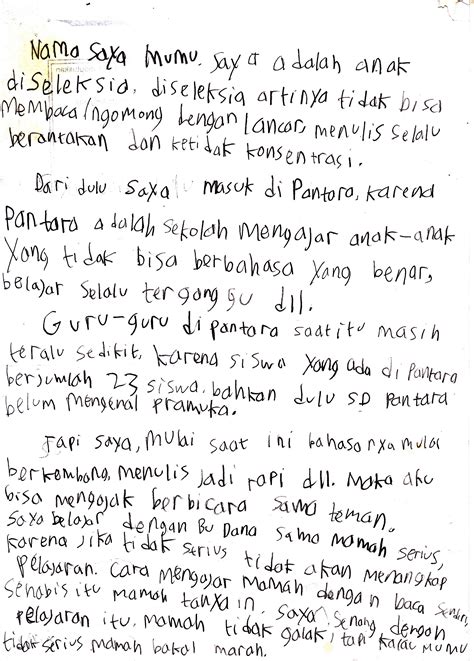 Nama saya mumu. Saya adalah anak
diseleksia, diseleksia artinya tidak bisa
membaca/ngomong dengan lancar, menulis selalu
berantakan dan ketidak konsentrasi.
Dari dulu saya masuk di Pantara, karena
Pantara adalah sekolah mengajar anak-anak
yang tidak bisa berbahasa yang benar,
belajar selalu terganggu dll.
Guru-guru di pantara saat itu masih
teralu sedikit, karena siswa yang ada di Pantara
berjumlah 23 siswa. bahkan dulu SD Pantara
belum mengenal pramuka.
Tapi saya, mulai saat ini bahasanya mulai
berkembang, menulis jadi rapi dll. Maka aku
bisa mengajak berbicara sama teman.
Saya belajar dengan Bu Dana sama mamah serius,
karena jika tidak serius tidak akan menangkap
pelajaran. Cara mengajar mamah dengan baca sendiri,
sehabis itu mamah tanyain. saya senang dengan
pelajaran itu. mamah tidak galak, tapi kalau mumu
tidak serius mamah bakal marah.